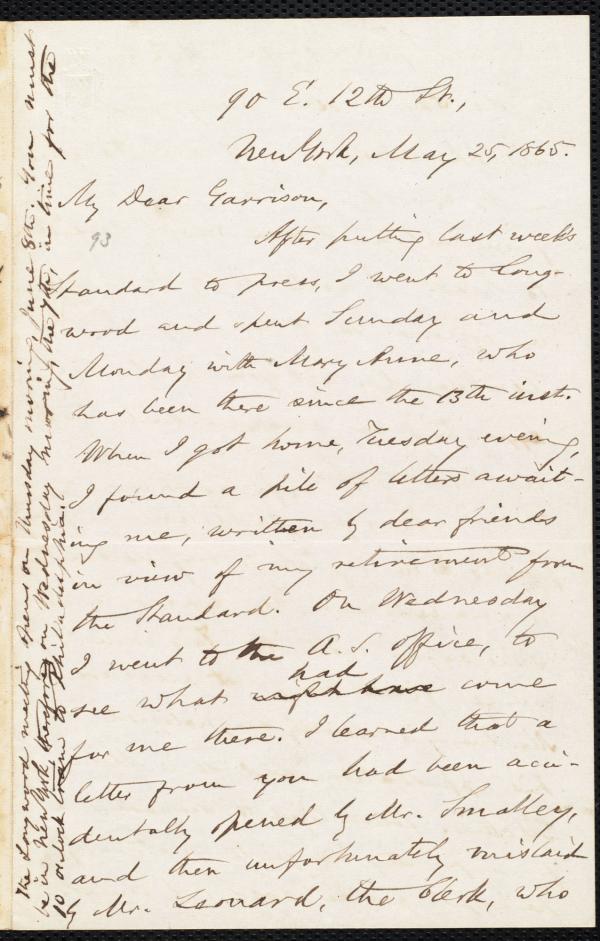 90 E. 12th St.,
New York, May 25, 1865.
My Dear Garrison,
93
After putting last week's
Standard to press, I went to Long-
wood and spent Sunday and
Monday with Mary Anne, who
has been there since the 13th inst.
When I got home, Tuesday evening,
I found a pile of letters await-
ing me, written by dear friends
in view of my retirement from
the Standard. On Wednesday
I went to the A. S. office, to
see what had come
for me there. I learned that a
letter from you had been acci-
dentally opened by Mr. Smalley,
and then unfortunately mislaid
by Mr. Leonard, the clerk, who
The Longwood meeting opens on Thursday morning, June 8th. You must
be in New York on Wednesday morning, the 7th, in time for the
10 o'clock train to Philadelphia.